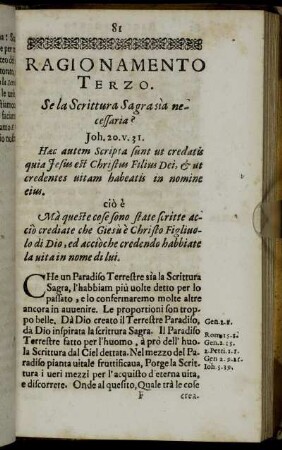 81
RAGIONAMENTO
TERZO.
Se la Scrittura Sagra sia ne-
cessaria?
Joh. 20. v. 31.
Hæc autem Scripta sunt ut credatis
quia Jesus est Christus Filius Dei, & ut
credentes uitam habeatis in nomine
eius.
ciò è
Mà queste cose sono state scritte ac-
ciò crediate che Giesù è Christo Figliuo-
lo di Dio, ed acciòche credendo habbiate
la uita in nome di lui.
CHe un Paradiso Terrestre sia la Scrittura
Sagra, l'habbiam più uolte detto per lo
passato, e lo confermaremo molte altre
ancora in auuenire. Le proportioni son trop-
po belle. Dà Dio creato il Terrestre Paradiso,
da Dio inspirata la scrittura Sagra. Il Paradiso
Terrestre fatto per l'huomo, à prò dell' huo-
la Scrittura dal Ciel dettata. Nel mezzo del Pa-
radiso pianta uitale fruttificaua, Porge la Scrit-
tura i ueri mezzi per l'acquisto d'eterna uita,
e discorrete. Onde al quesito, Quale trà le cose
F
Gen. 2. 8.
Rom. 15. 4.
Gen. 2. 15.
2. Petri. 1.
Gen 2. 9.
Joh. 5. 39.